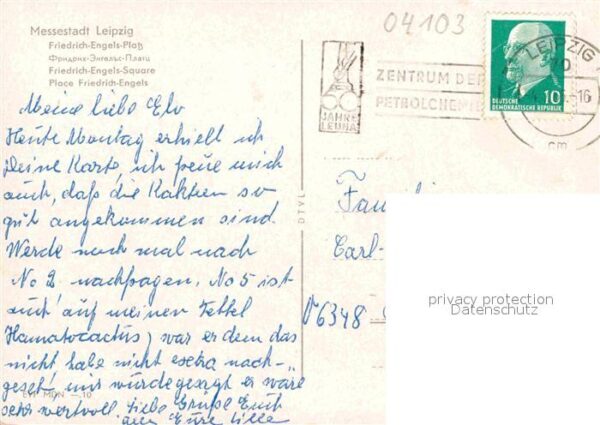 Messestadt Leipzig
Friedrich-Engels-Platz
Фридрих-Энгельс-Плати
Friedrich-Engels-Square
Place Friedrich-Engels
Meine liebe Elv
Heute Montag erhielt ich
Deine Karte, ich freue mich
auch, daß die Kakteen so
gut angekommen sind.
Werde noch mal nach
No 2 nachfragen, No 5 ist
auf meinen Zettel
Hamatocactus, war er dem das
nicht habe nicht extra nach-
geseh', mir wurde gesagt er wäre
sehr wertvoll. Liebe Grüße Euch
allen Eure Lilli
EVP MDN —,10
DTVL
04103
60
JAHRE
LEUNA
ZENTRUM DER
PETROLCHEMIE
LEIPZIG
-16
cm
10
DEUTSCHE
DEMOKRATISCHE REPUBLIK
Carl-
6348
privacy protection
Datenschutz